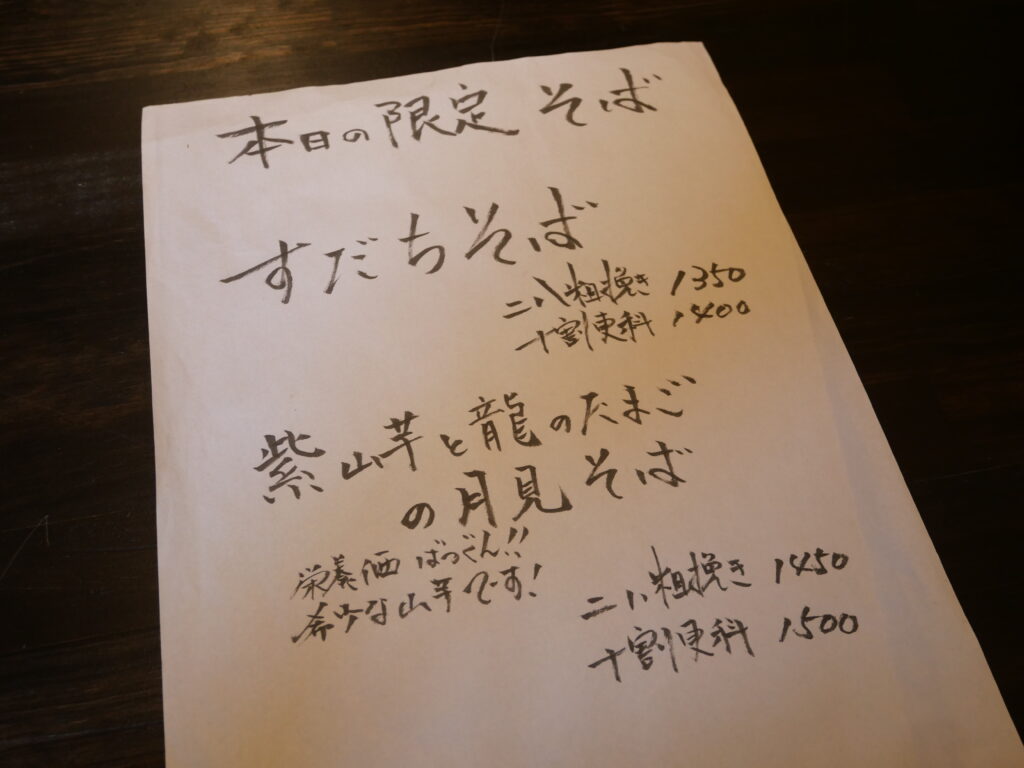 本日の限定 そば
すだちそば
二八粗挽き 1350
十割更科 1400
紫山芋と龍のたまご
の月見そば
栄養価 ばつぐん!!
希少な山芋です!
二八粗挽き 1450
十割更科 1500